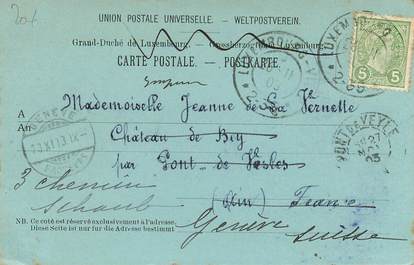 201
UNION POSTALE UNIVERSELLE. – WELTPOSTVEREIN.
Grand-Duché de Luxembourg. – Grossherzogthum Luxemburg.
CARTE POSTALE. – POSTKARTE.
LUXEMBOURG-VILLE
LUXEMBOURG
5 5
A Mademoiselle Jeanne de La Vernette
An Château de Bey
à par Pont-de-Vesles
in (Ain) France
3 chemin
Schaub
Genève
Suisse
GENÈVE
PONT-DE-VEYLE
NB. Ce côté est réservé exclusivement à l'adresse.
Diese Seite ist nur für die Adresse bestimmt